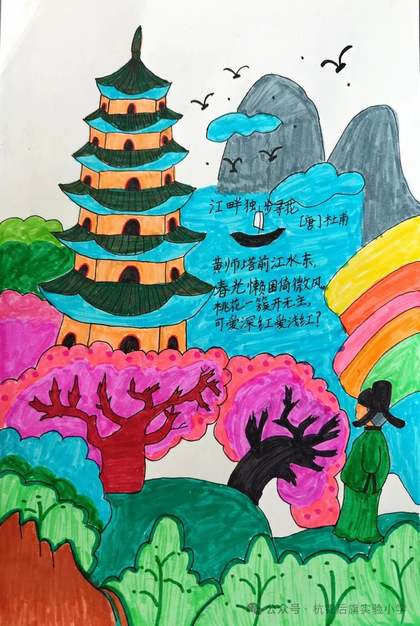 江畔独步寻花
[唐]杜甫
黄师塔前江水东,
春光懒困倚微风。
桃花一簇开无主,
可爱深红爱浅红?
公众号·杭锦后旗实验小学